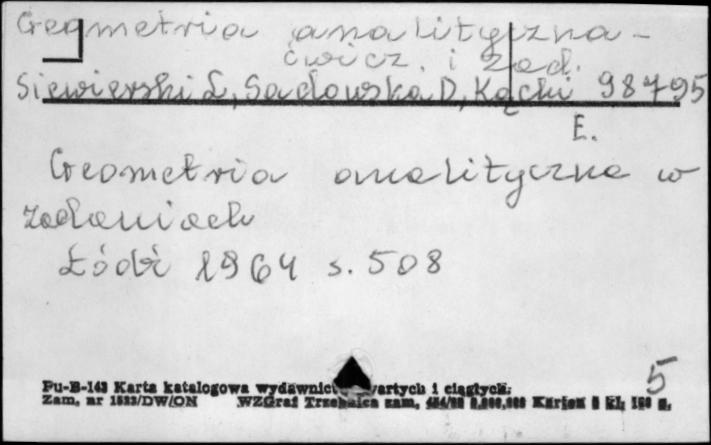 Geometria analityczna -
ćwicz. i zad.
Siewierski L, Sadowska D, Kącki 98795
E.
Geometria analityczna w
zadaniach
Łódź 1964 s. 508
5
Pu-B-143 Karta katalogowa wydawnictw zwartych i ciągłych.
Zam. nr 1523/DW/ON WZGraf Trzebnica zam.